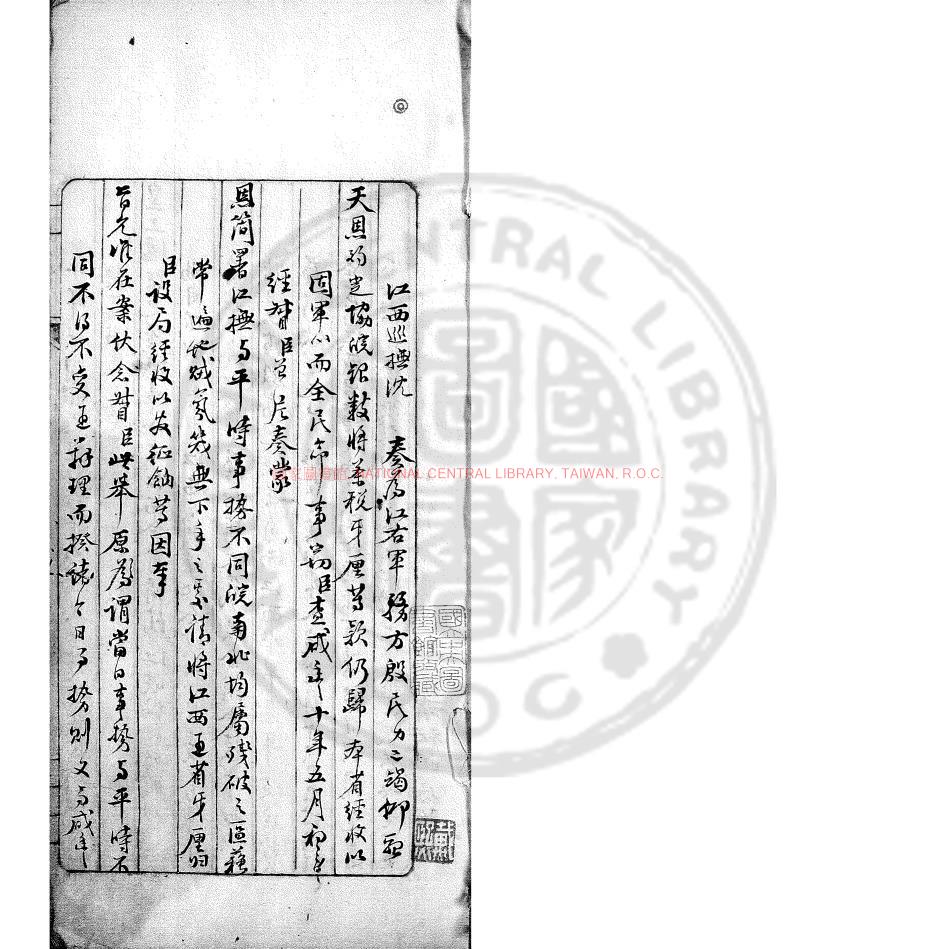 江西巡撫沈 奏為江右軍務方殷民力已竭仰懇
天恩酌定協皖銀數將茶稅牙厘等款仍歸本省經收以
固軍心而全民命事竊臣查咸豐十年五月初
經督臣曾 片奏蒙
恩簡署江撫與平時事勢不同皖南北均屬殘破之區蘇
常遍地賊氛幾無下手之處請將江西通省牙厘歸
臣設局經收以發征餉等因奉
旨允准在案伏念督臣此舉原為謂當日事勢與平時不
同不得不變通辦理而揆諸今日局勢則又與咸豐
國家圖書館 NATIONAL CENTRAL LIBRARY, TAIWAN, R.O.C.
CENTRAL LIBRARY
國家圖書